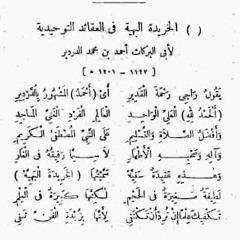 ( ) الخريدة البهية فى العقائد التوحيدية
لأبى البركات أحمد بن محمد الدردير
[ ١١٢٧ - ١٢٠١ هـ ]
يَقُولُ رَاجِى رَحْمَةِ الْقَدِيرِ أَىْ (أَحْمَدُ) الْمَشْهُورُ بِالدَّرْدِيرِ
الْحَمْدُ لِلّٰهِ الْعَلِىِّ الْوَاحِدِ الْعَالِمِ الْفَرْدِ الْغَنِىِّ الْمَاجِدِ
وَأَفْضَلُ الصَّلَاةِ وَالتَّسْلِيمِ عَلَى النَّبِىِّ الْمُصْطَفَى الْكَرِيمِ
وَآلِهِ وَصَحْبِهِ الْأَطْهَارِ لَا سِيَّمَا رَفِيقُهُ فِى الْغَارِ
وَهٰذِهِ عَقِيدَةٌ سَنِيَّةْ سَمَّيْتُهَا (الْخَرِيدَةَ الْبَهِيَّةْ)
لَطِيفَةٌ صَغِيرَةٌ فِى الْحَجْمِ لٰكِنَّهَا كَبِيرَةٌ فِى الْعِلْمِ
تَكْفِيكَ عِلْمًا إِنْ تُرِدْ أَنْ تَكْتَفِى لِأَنَّهَا بِزُبْدَةِ الْفَنِّ تَفِى